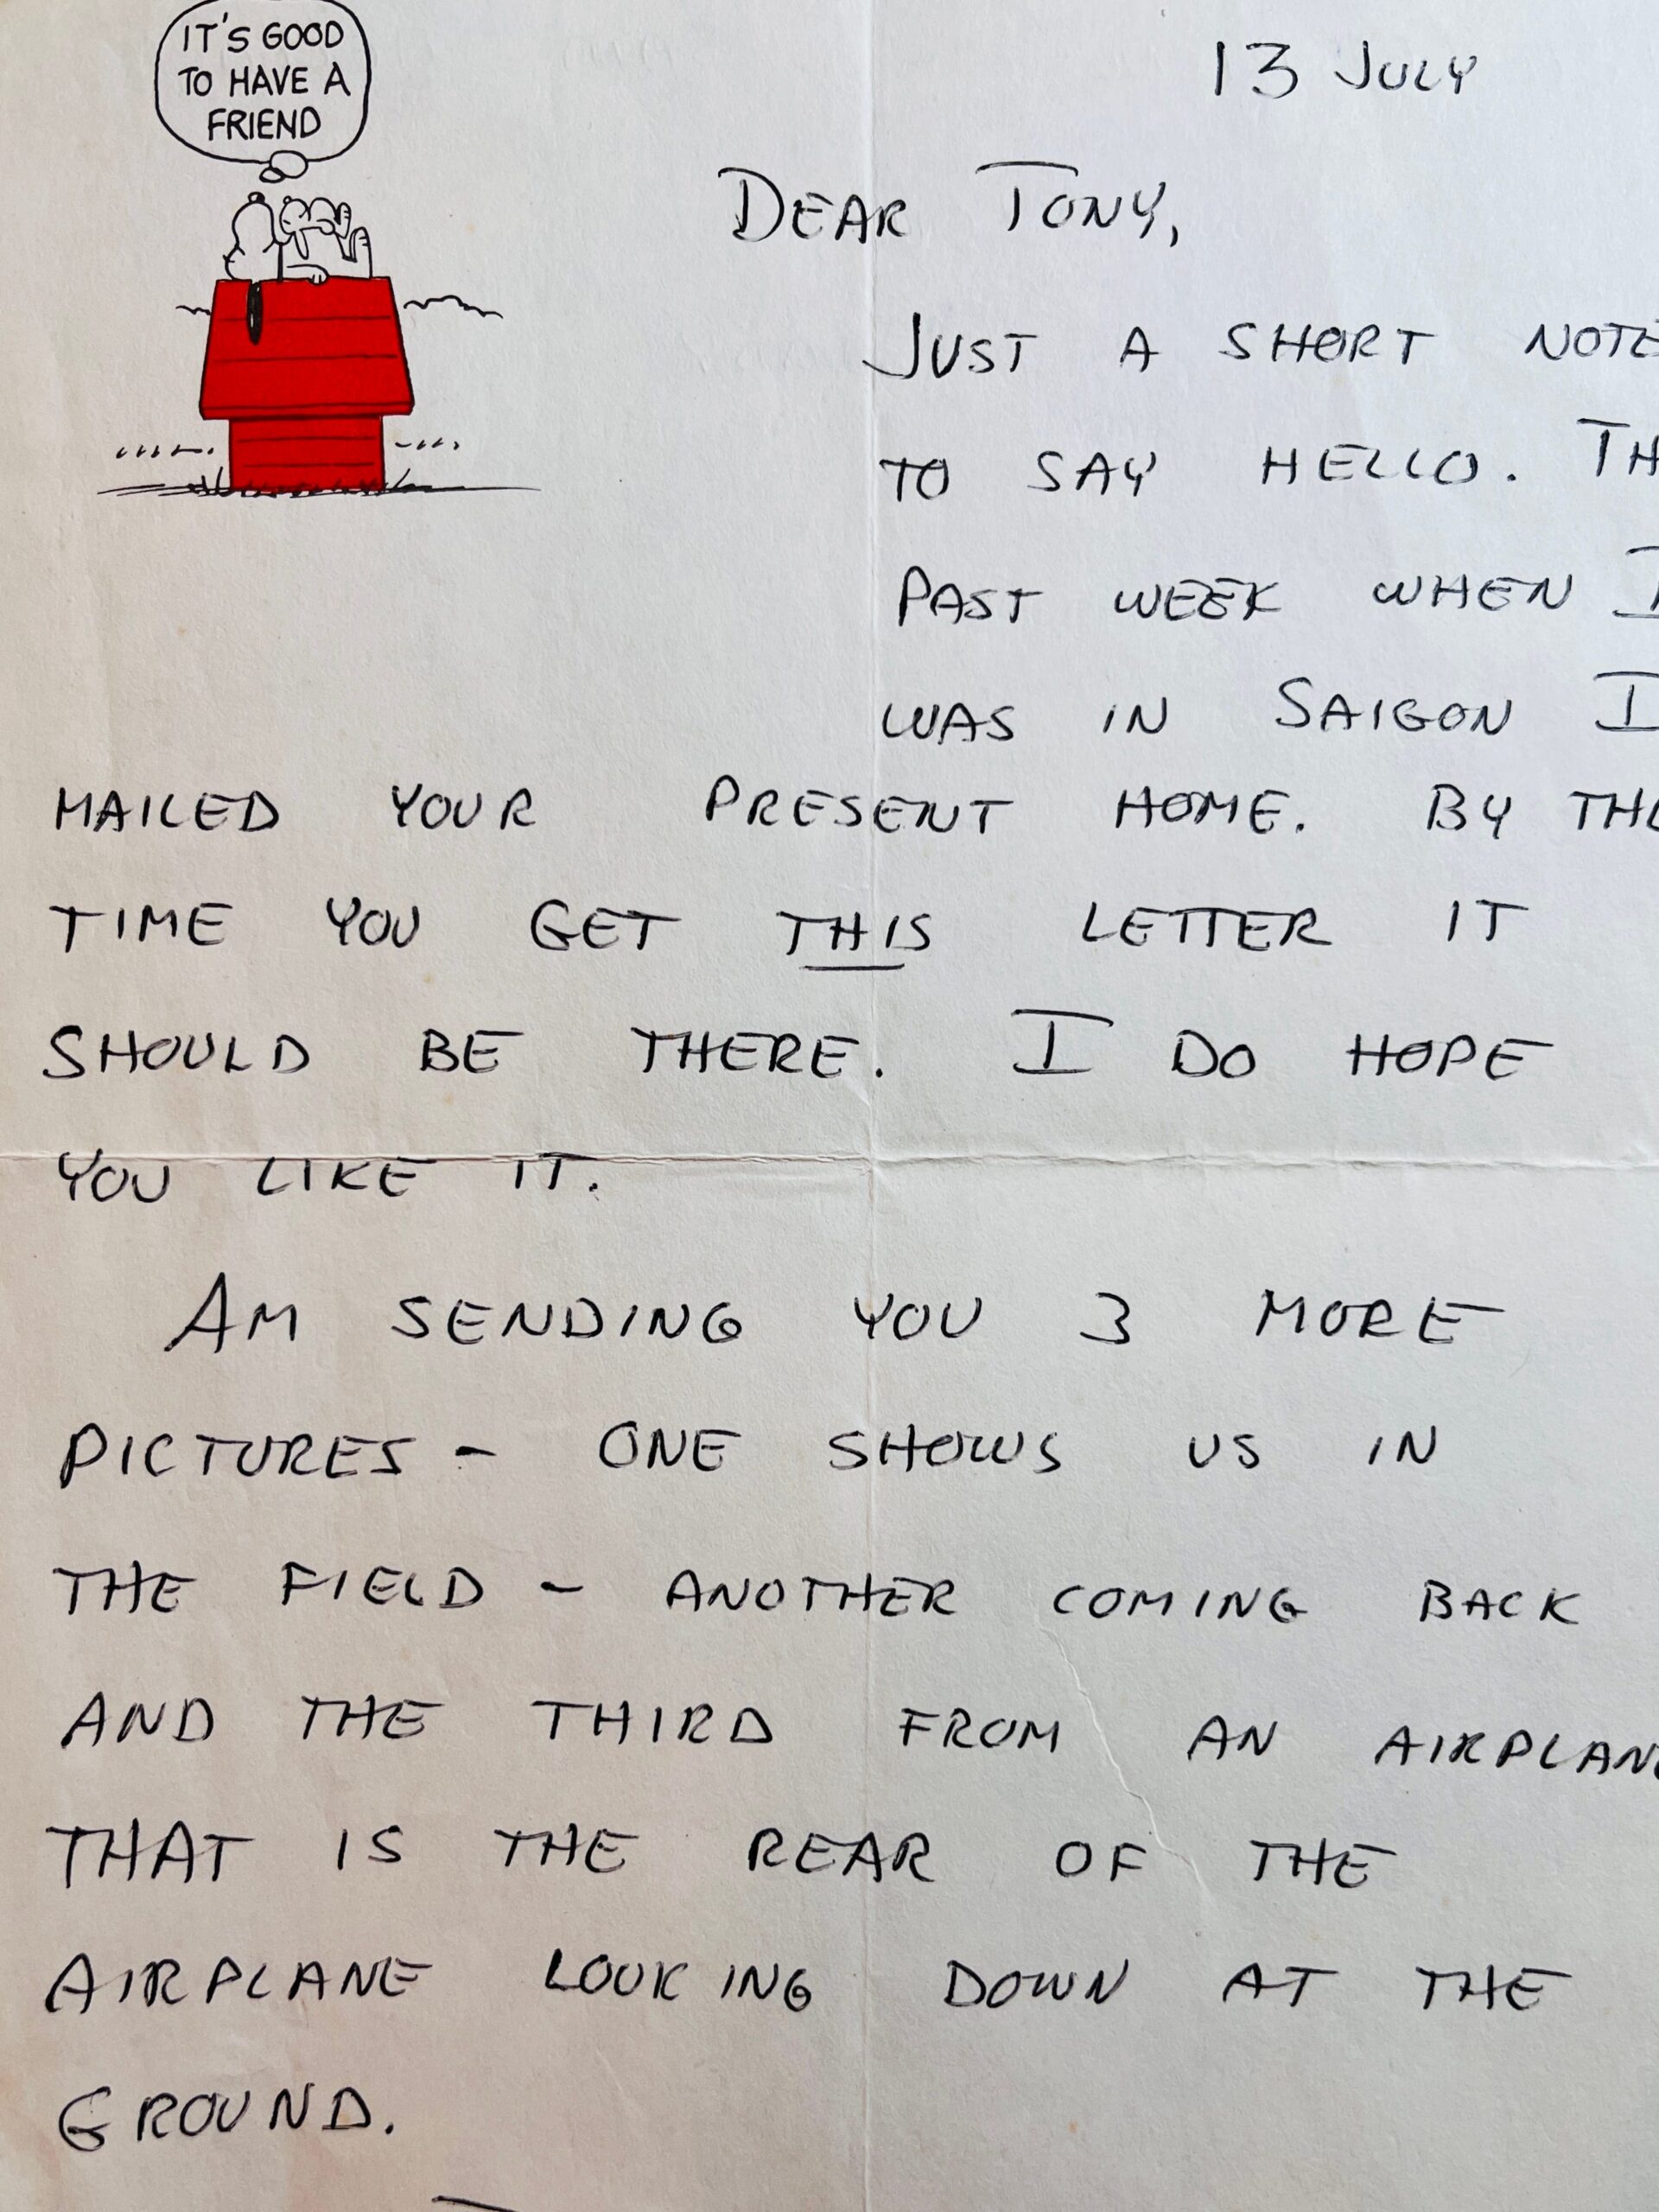 IT'S GOOD
TO HAVE A
FRIEND
13 JULY
DEAR TONY,
JUST A SHORT NOTE
TO SAY HELLO. TH
PAST WEEK WHEN I
WAS IN SAIGON I
MAILED YOUR PRESENT HOME. BY THE
TIME YOU GET THIS LETTER IT
SHOULD BE THERE. I DO HOPE
YOU LIKE IT.
AM SENDING YOU 3 MORE
PICTURES - ONE SHOWS US IN
THE FIELD - ANOTHER COMING BACK
AND THE THIRD FROM AN AIRPLANE
THAT IS THE REAR OF THE
AIRPLANE LOOKING DOWN AT THE
GROUND.